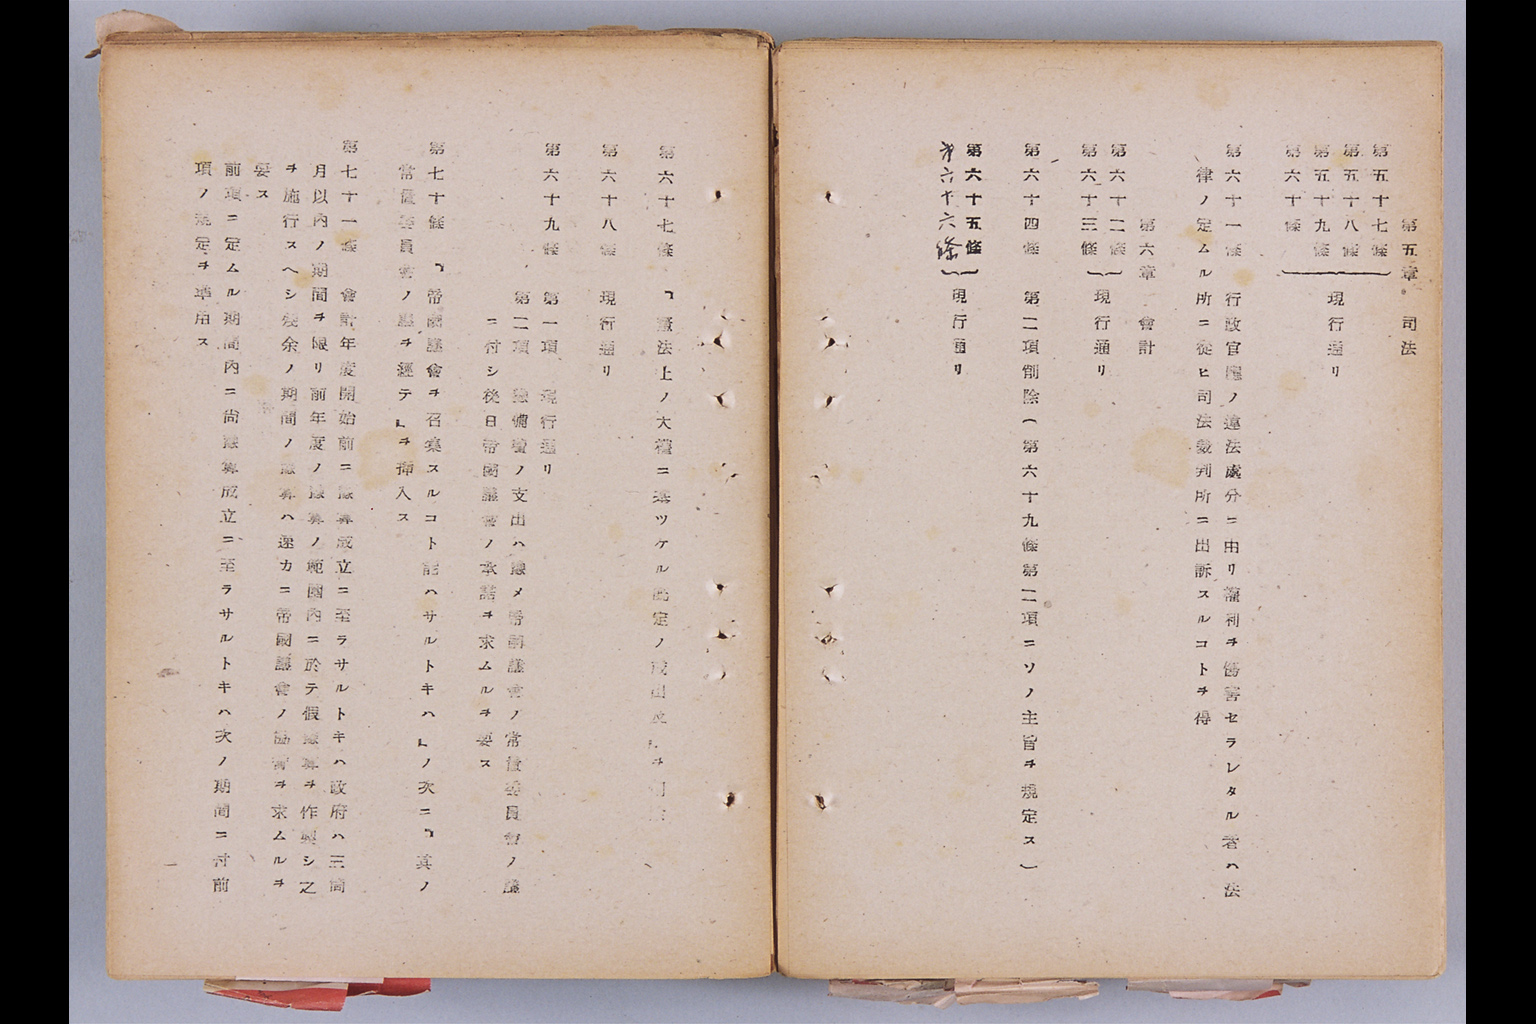 第五章　司法
第五十七條
第五十八條
第五十九條
第六十條
現行通リ
第六十一條　行政官廳ノ違法處分ニ由リ權利ヲ傷害セラレタル者ハ法
律ノ定ムル所ニ從ヒ司法裁判所ニ出訴スルコトヲ得
第六章　會計
第六十二條
第六十三條
現行通リ
第六十四條　第二項削除（第六十九條第二項ニソノ主旨ヲ規定ス）
第六十五條
第六十六條
現行通リ
第六十七條　「憲法上ノ大權ニ基ツケル既定ノ歳出及」ヲ削
第六十八條　現行通リ
第六十九條　第一項　現行通リ
第二項　豫備費ノ支出ハ豫メ帝國議會ノ常置委員會ノ議
ニ付シ後日帝國議會ノ承諾ヲ求ムルヲ要ス
第七十條　「帝國議會ヲ召集スルコト能ハサルトキハ」ノ次ニ「其ノ
常置委員會ノ議ヲ經テ」ヲ挿入ス
第七十一條　會計年度開始前ニ豫算成立ニ至ラサルトキハ政府ハ三箇
月以內ノ期間ヲ限リ前年度ノ豫算ノ範圍內ニ於テ假豫算ヲ作製シ之
ヲ施行スヘシ殘余ノ期間ノ豫算ハ速カニ帝國議會ノ協賛ヲ求ムルヲ
要ス
前項ニ定ムル期間內ニ尚豫算成立ニ至ラサルトキハ次ノ期間ニ付前
項ノ規定ヲ準用ス